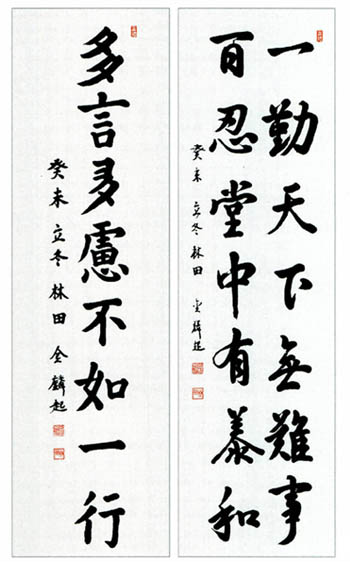 一勤天下無難事
百忍堂中有泰和
癸未 立冬 林田 全麟起
多言多慮不如一行
癸未 立冬 林田 全麟起